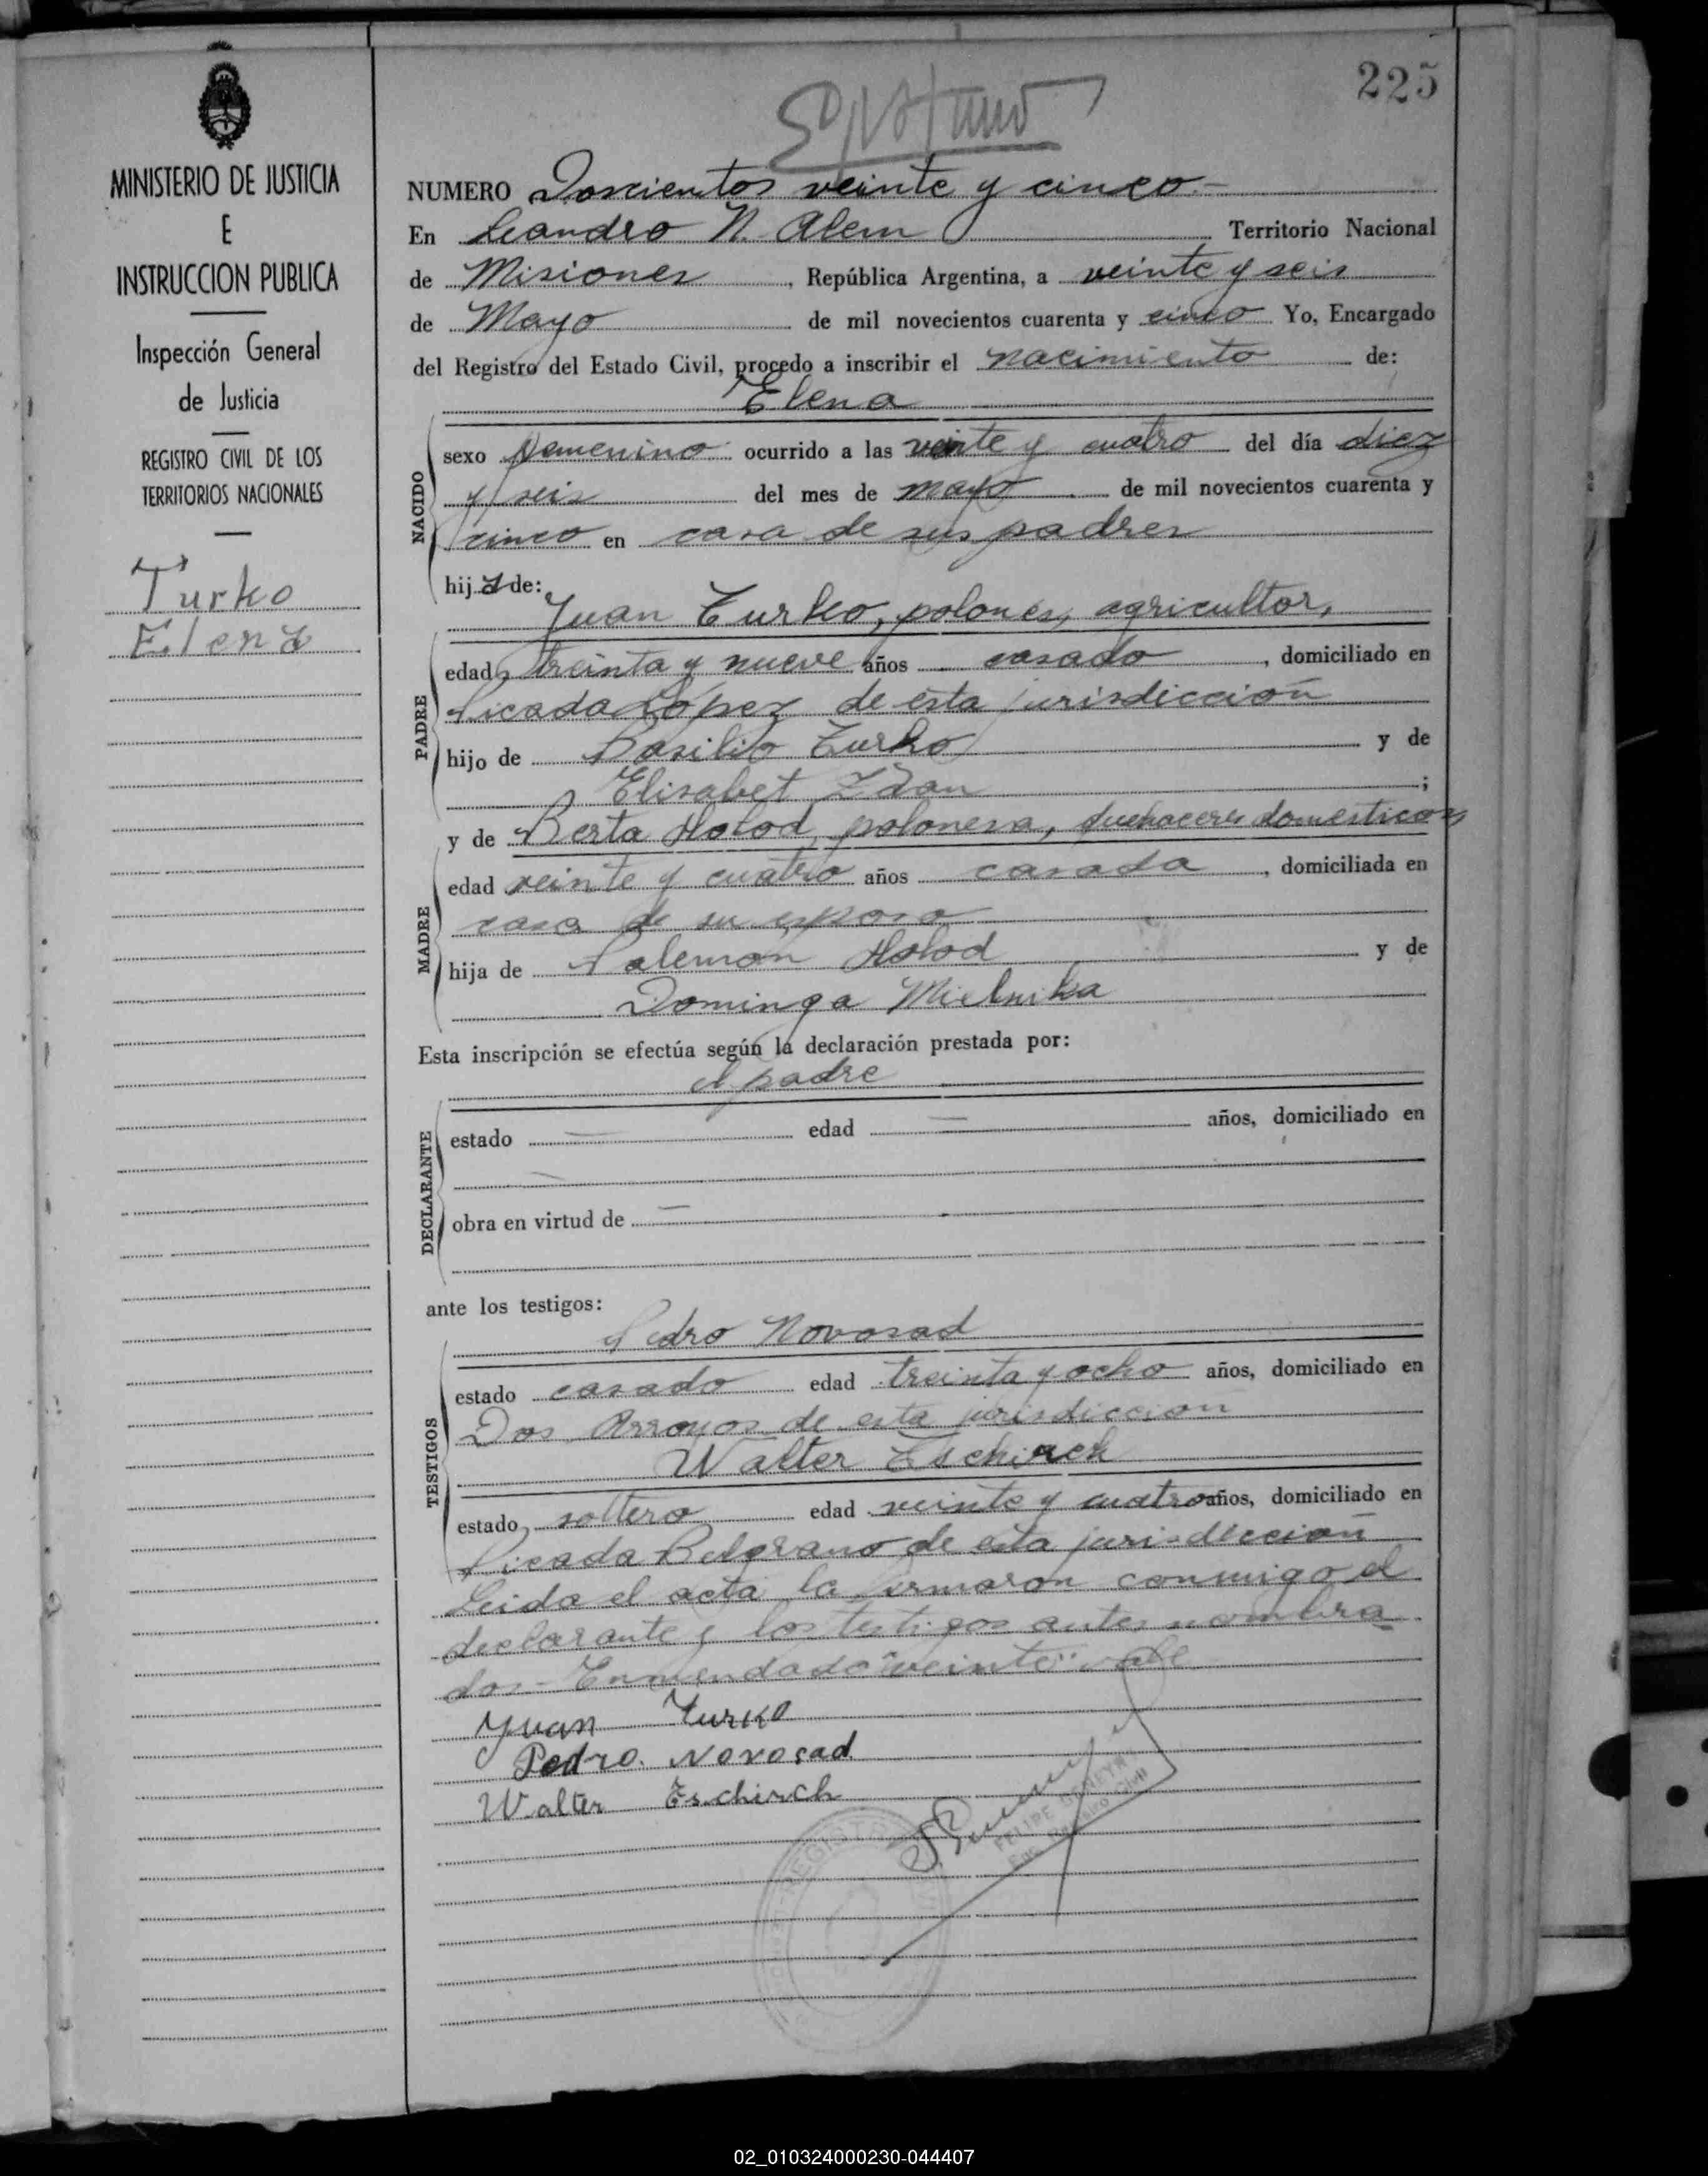 225
NUMERO Doscientos veinte y cinco.-
En Leandro N. Alem Territorio Nacional
de Misiones, República Argentina, a veinte y seis
de Mayo de mil novecientos cuarenta y cinco Yo, Encargado
del Registro del Estado Civil, procedo a inscribir el nacimiento de:
Elena
MINISTERIO DE JUSTICIA
E
INSTRUCCION PUBLICA
Inspección General
de Justicia
REGISTRO CIVIL DE LOS
TERRITORIOS NACIONALES
Turko
Elena
NACIDO
sexo femenino ocurrido a las veinte y cuatro del día diez
y seis del mes de mayo de mil novecientos cuarenta y
cinco en casa de sus padres
hija de:
Juan Turko, polonés, agricultor,
PADRE
edad treinta y nueve años casado, domiciliado en
Picada López de esta jurisdicción
hijo de Basilio Turko y de
Elisabet Zdan;
y de Berta Holod, polonesa, quehaceres domesticos
MADRE
edad veinte y cuatro años casada, domiciliada en
casa de su esposo
hija de Palemón Holod y de
Dominga Mielnika
Esta inscripción se efectúa según la declaración prestada por:
el padre
DECLARANTE
estado — edad — años, domiciliado en
—
obra en virtud de —
ante los testigos:
Pedro Novosad
TESTIGOS
estado casado edad treinta y ocho años, domiciliado en
Dos Arroyos de esta jurisdiccion
Walter Eschirch
estado soltero edad veinte y cuatro años, domiciliado en
Picada Belgrano de esta jurisdiccion
Leida el acta la firmaron conmigo el
declarante y los testigos antes nombra
dos- Enmendado "veinte" vale
Juan Turko
Pedro. Novosad
Walter Eschirch
FELIPE
Enc. Registro Civil
REGISTRO
02_010324000230-044407